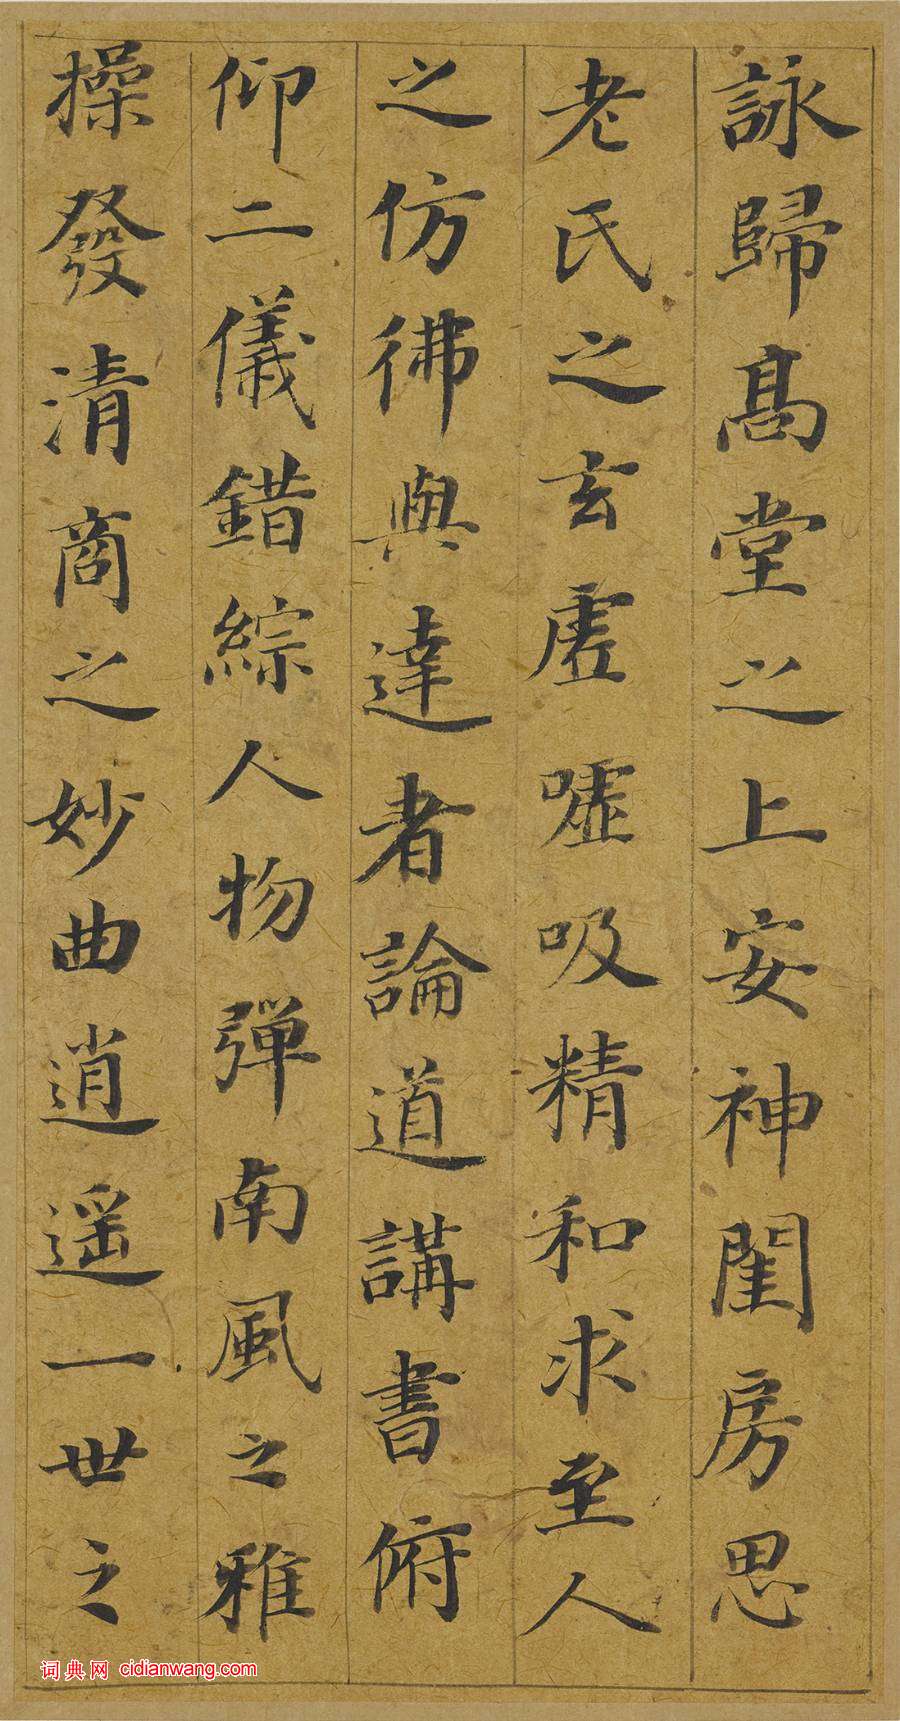 詠歸髙堂之上安神閨房思
老氏之玄虛嘘吸精和求至人
之仿彿與達者論道講書俯
仰二儀錯綜人物彈南風之雅
操發清商之妙曲逍遥一世之
词典网 cidianwang.com